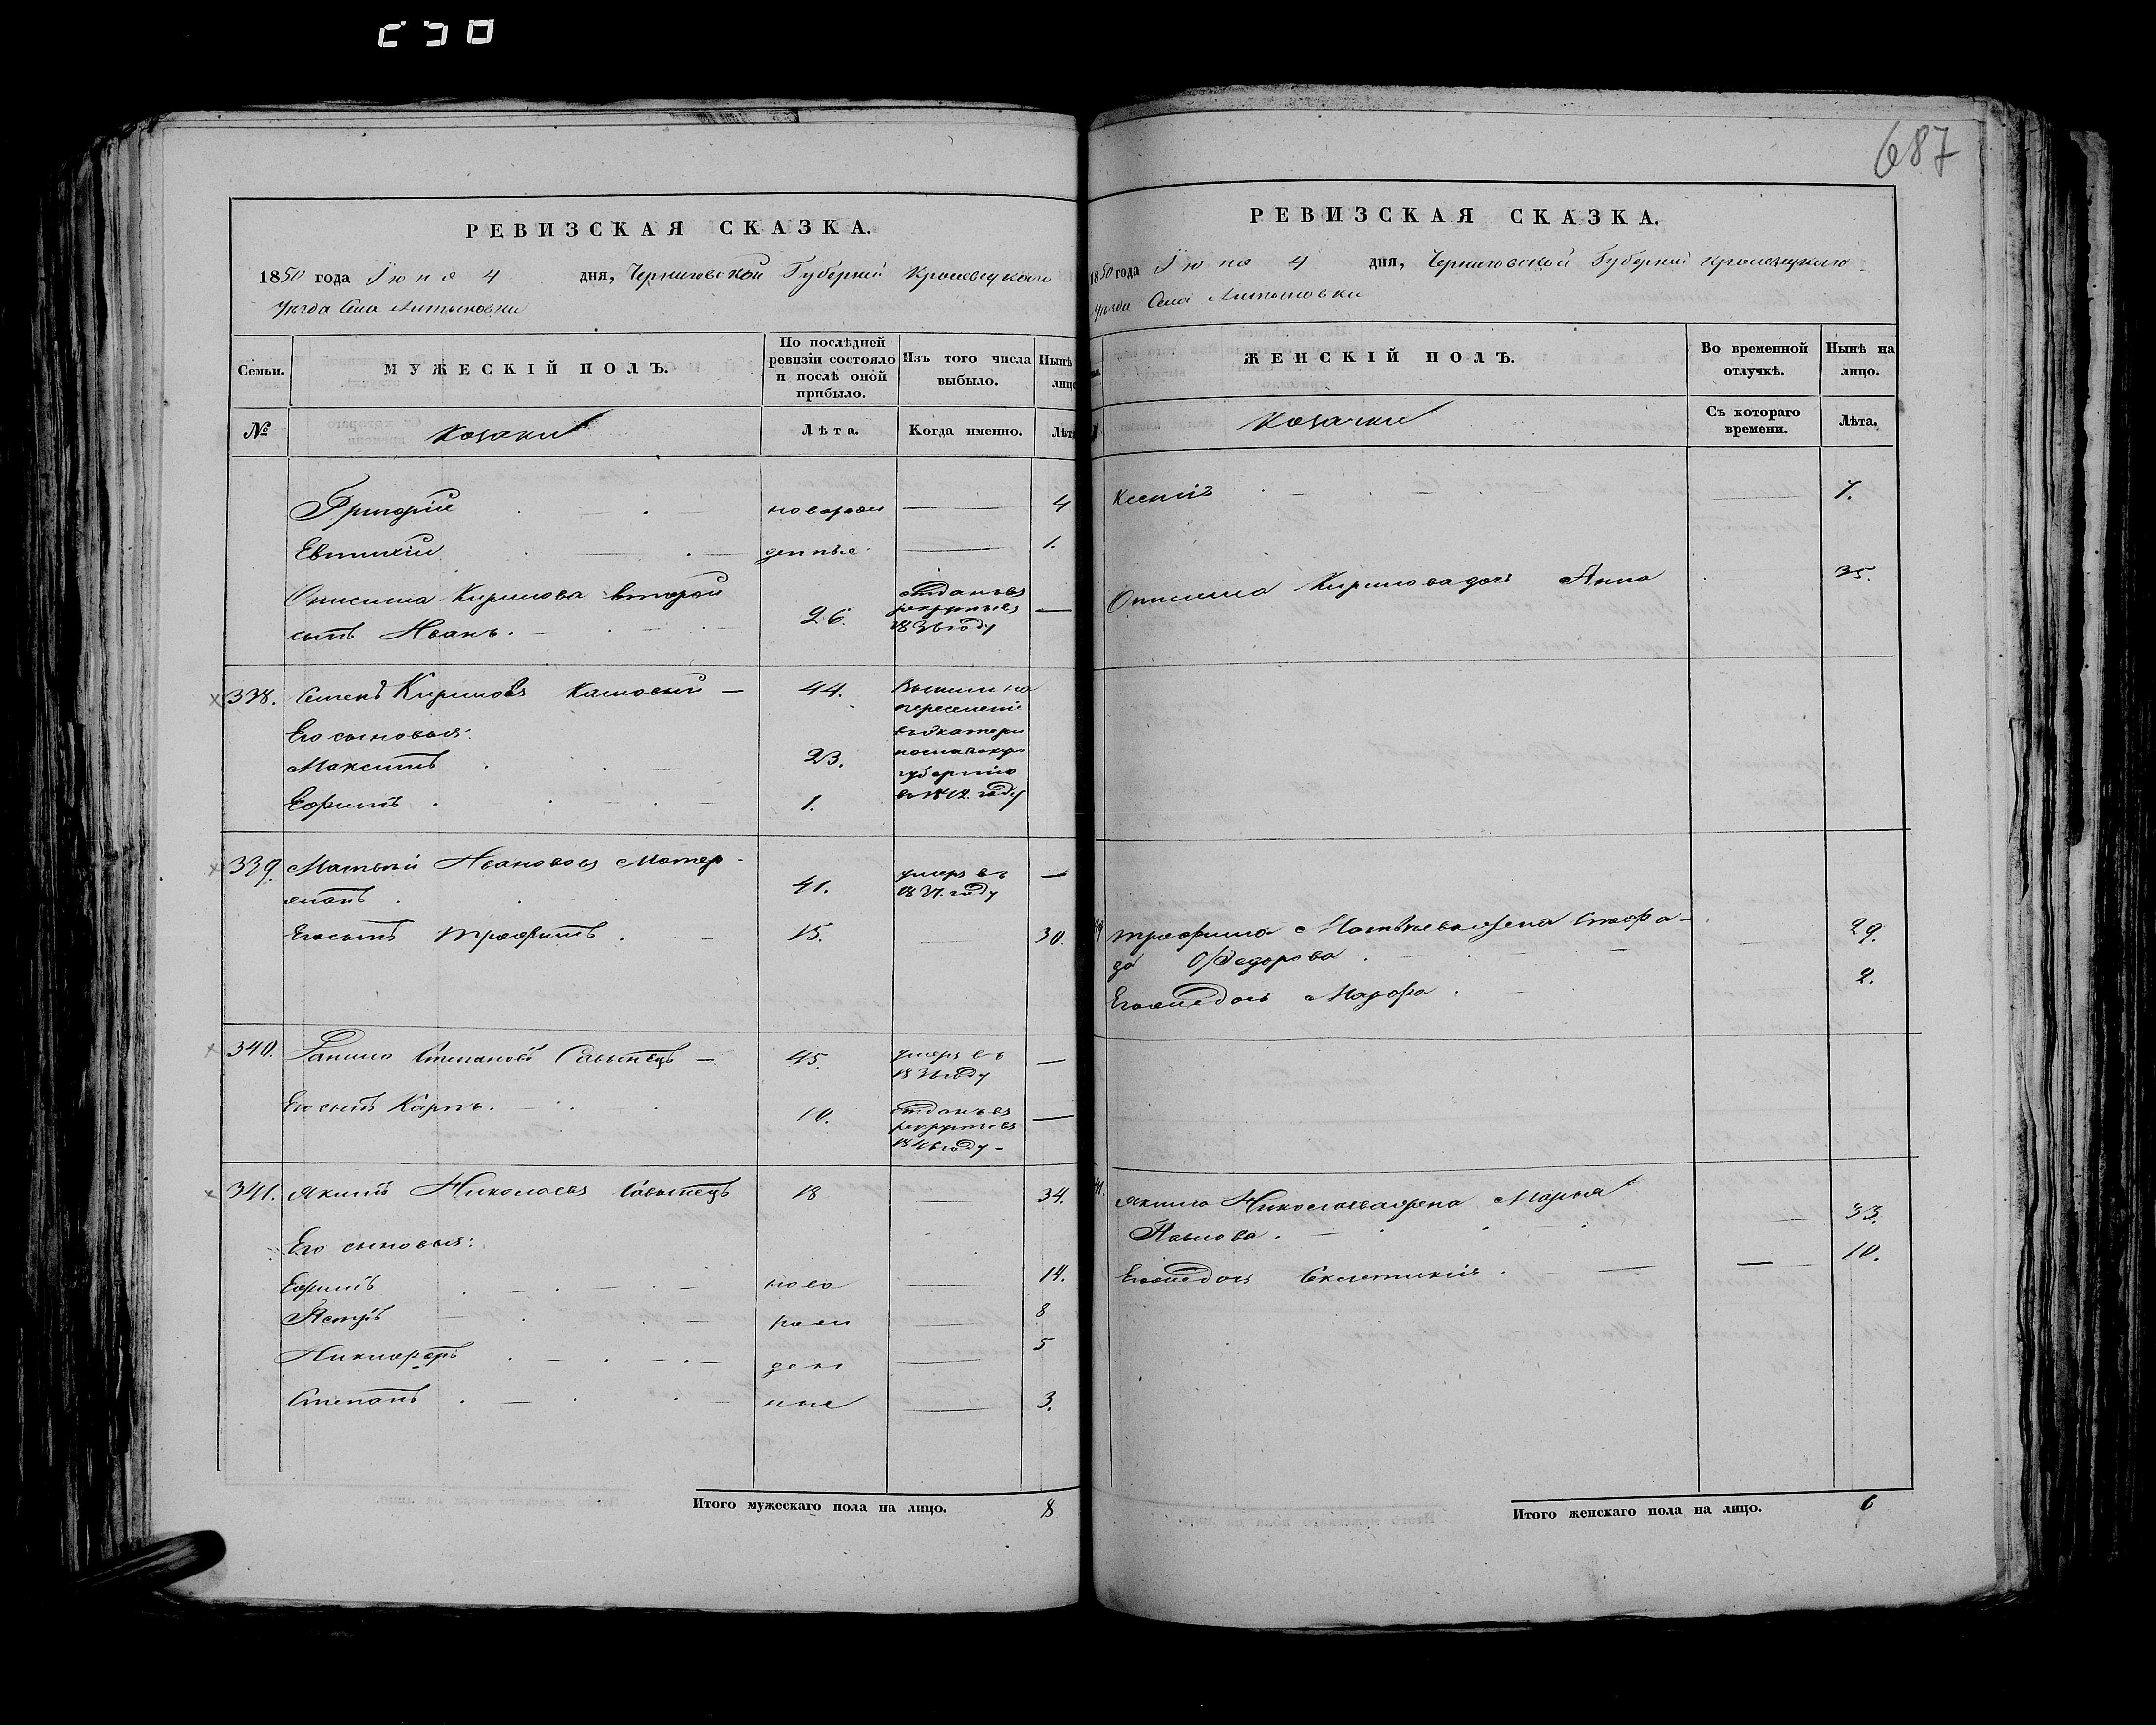 687
РЕВИЗСКАЯ СКАЗКА.
1850 года Іюня 4 дня, Черниговской Губерніи Кролевецкаго
Уѣзда Села Литвиновки
Семьи.
МУЖЕСКІЙ ПОЛЪ.
По послѣдней ревизіи состояло и послѣ оной прибыло.
Изъ того числа выбыло.
Нынѣ лицо
№
Козаки
Лѣта.
Когда именно.
Лѣта
Григорій новорож 4
Евтихій денные 1.
Онисима Кирилова второй отданъ въ
сынъ Иванъ. 26. рекруты въ 1836 году —
338. Семенъ Кириловъ 44. Вышли на
переселеніе
Его сыновья: въ Екатери
Максимъ 23. нославскую
губернію
Ефимъ 1. въ 1842 году
339. Матвѣй Ивановъ 41. умеръ въ 1837. году —
Его сынъ Трофимъ. 15. 30.
340. Данило Степановъ 45. умеръ въ 1836 году —
Его сынъ Карпъ. 10. отданъ въ рекруты въ 1846 году —
341. Якимъ Николаевъ 18 34.
Его сыновья:
Ефимъ ново 14.
Петръ рож 8
Никифоръ ден 5
Степанъ ные 3.
Итого мужескаго пола на лицо. 8
РЕВИЗСКАЯ СКАЗКА.
1850 года Іюня 4 дня, Черниговской Губерніи Кролевецкаго
Уѣзда Села Литвиновки
ЖЕНСКІЙ ПОЛЪ.
Во временной отлучкѣ.
Нынѣ на лицо.
Козачки
Съ котораго времени.
Лѣта.
Ксенія 7.
Онисима Кирилова дочь Анна 35.
Трофима Матвѣева жена Стефа-
да Федорова 29.
Его же дочь Марфа. 2.
41. Якима Николаева жена Марья
Павлова. 33.
Его же дочь Секлетикія. 10.
Итого женскаго пола на лицо. 6